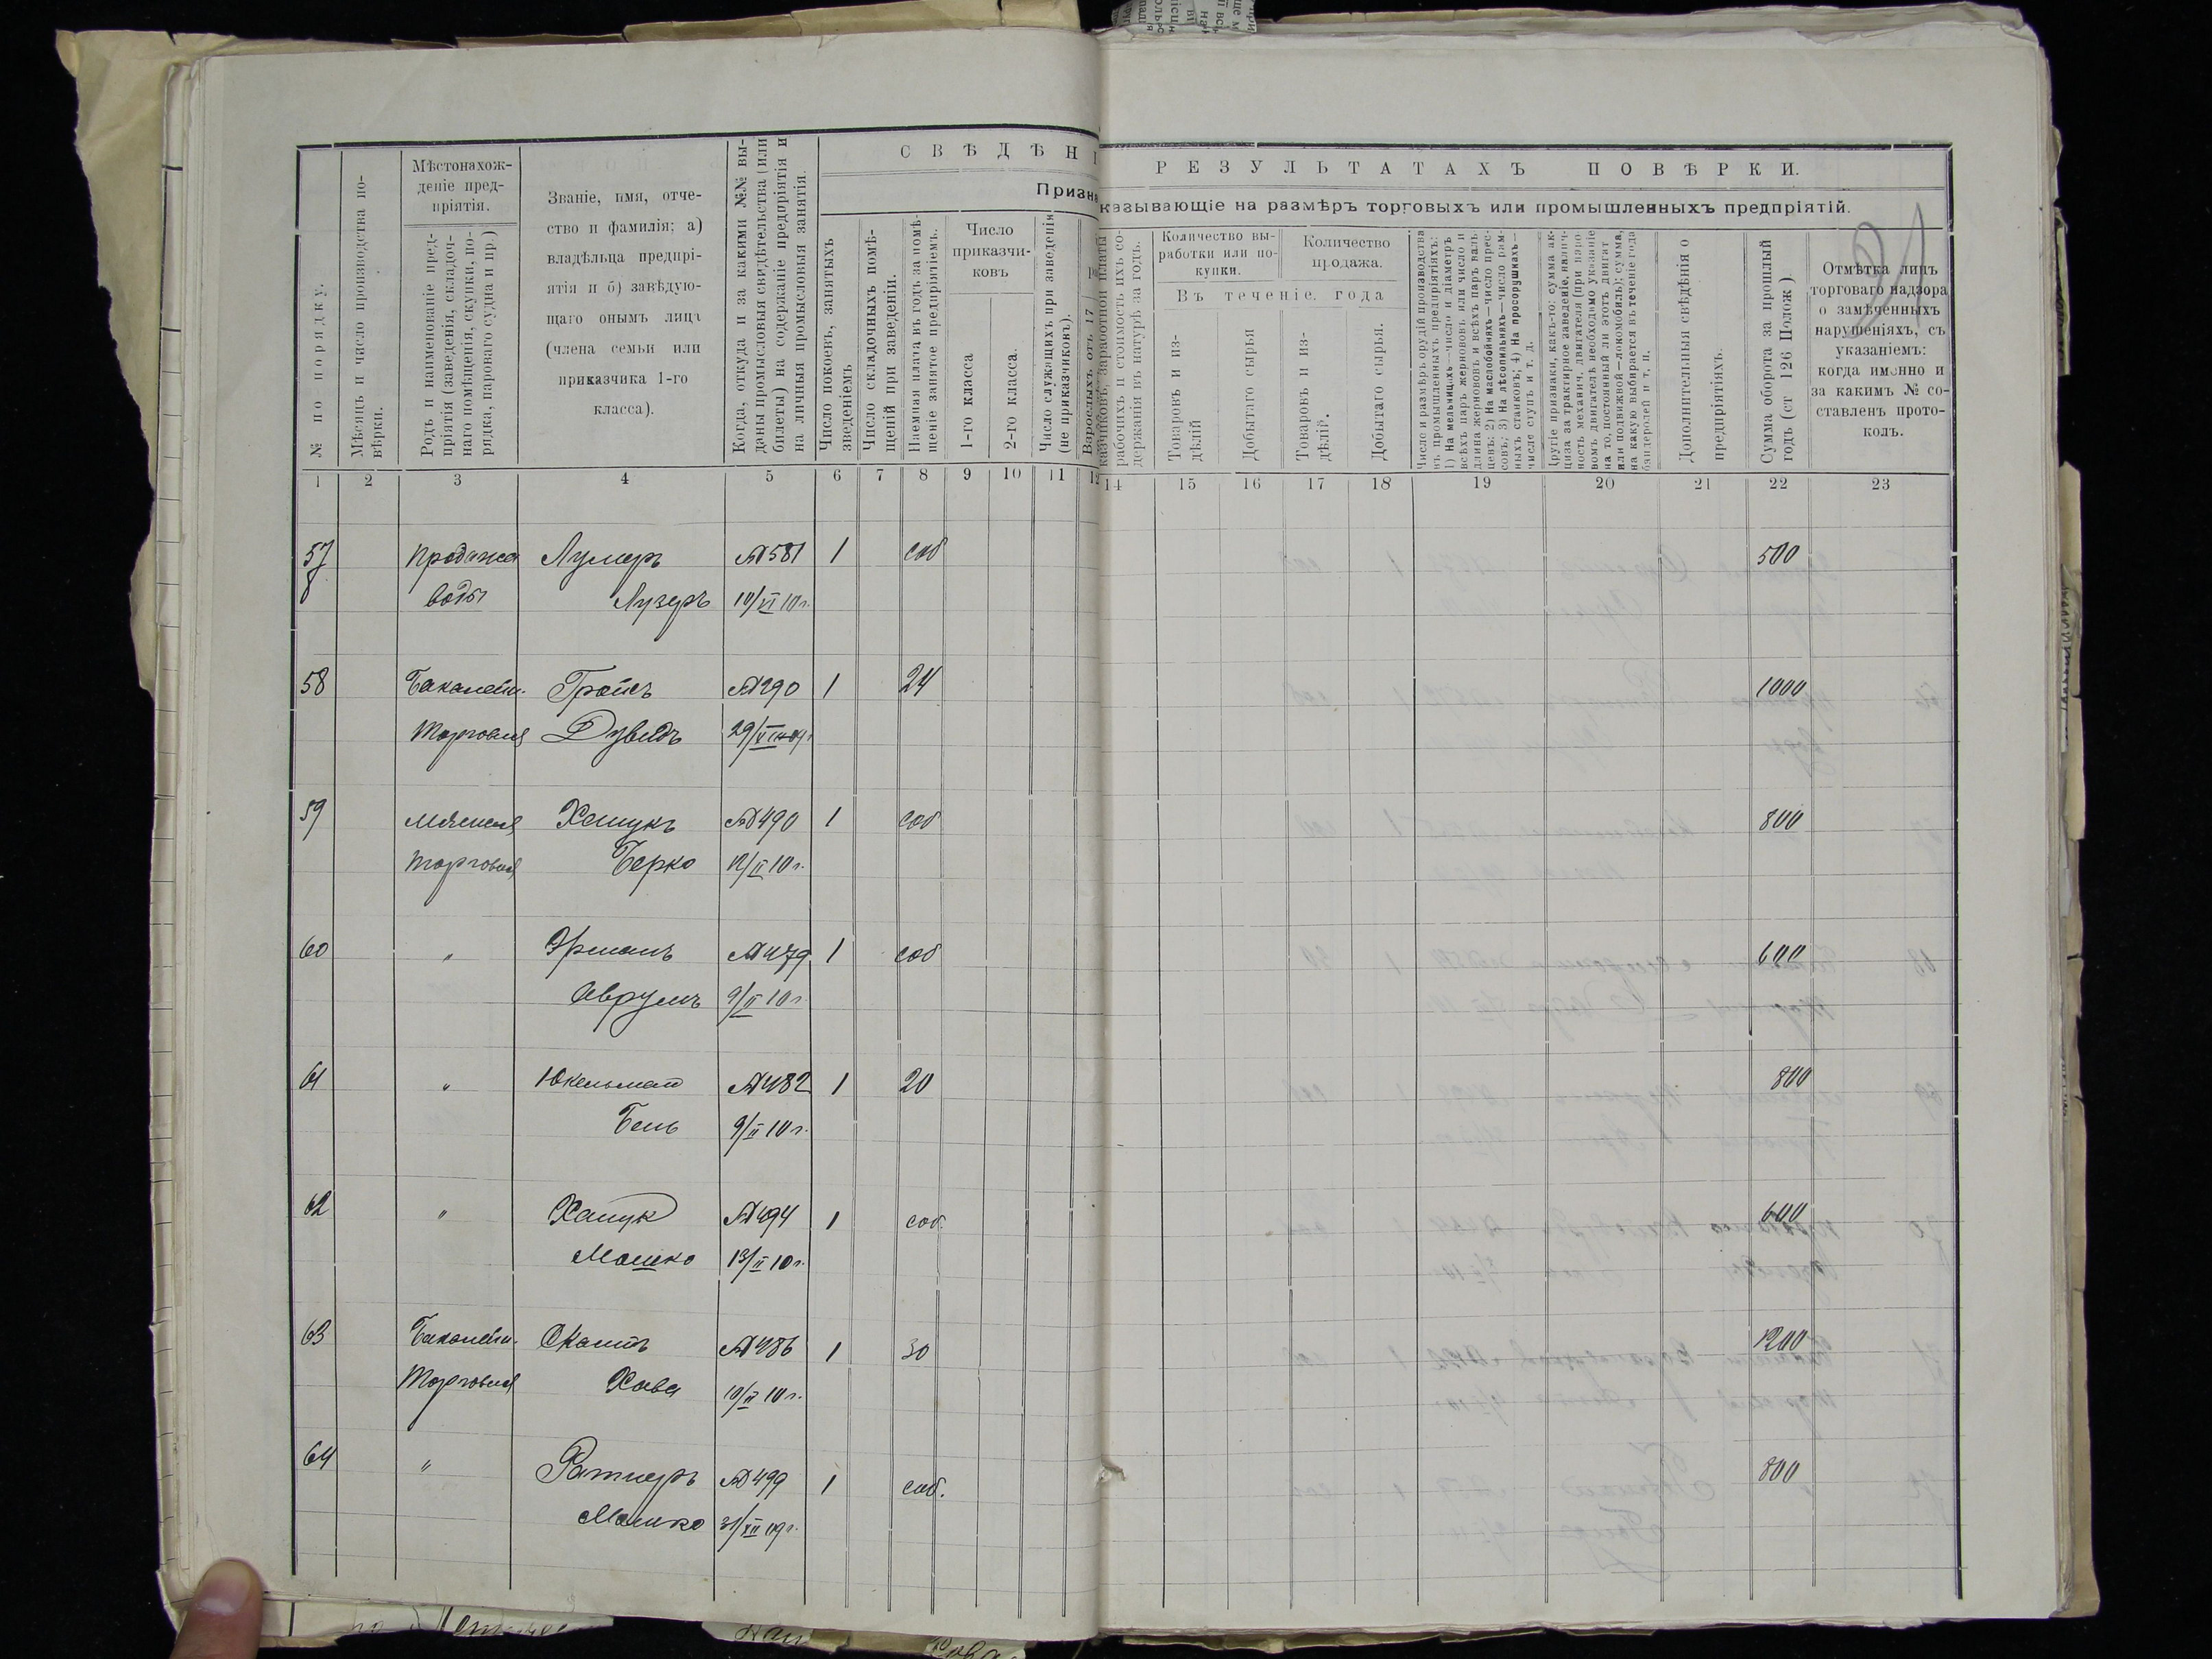 СВѢДѢНІ
РЕЗУЛЬТАТАХЪ ПОВѢРКИ.
Призна
казывающіе на размѣръ торговыхъ или промышленныхъ предпріятій.
№ по порядку.
Мѣсяцъ и число производства по-
вѣрки.
Мѣстонахож-
деніе пред-
пріятія.
Родъ и наименованіе пред-
пріятія (заведенія, складоч-
наго помѣщенія, скупки, по-
рядка, пароваго судна и пр.)
Званіе, имя, отче-
ство и фамилія; а)
владѣльца предпрі-
ятія и б) завѣдую-
щаго онымъ лица
(члена семьи или
приказчика 1-го
класса).
Когда, откуда и за какими №№ вы-
даны промысловыя свидѣтельства (или
билеты) на содержаніе предпріятія и
на личныя промысловыя занятія.
Число покоевъ, занятыхъ
зведеніемъ
Число складочныхъ помѣ-
щеній при заведеніи.
Наемная плата въ годъ за помѣ-
щеніе занятое предпріятіемъ.
Число
приказчи-
ковъ
1-го класса
2-го класса.
Число служащихъ при заведеніи
(не приказчиковъ).
Взрослыхъ отъ 17
казчиковъ, заработной платы
рабочихъ и стоимость ихъ со-
держанія въ натурѣ за годъ.
Количество вы-
работки или по-
купки.
Количество
продажа.
Въ теченіе года
Товаровъ и из-
дѣлій
Добытаго сырья
Товаровъ и из-
дѣлій.
Добытаго сырья.
Число и размѣръ орудій производства
въ промышленныхъ предпріятіяхъ:
1) На мельницахъ—число и діаметръ
всѣхъ паръ жернововъ или число и
длина жернововъ и всѣхъ паръ валь-
цевъ; 2) На маслобойняхъ—число прес-
совъ; 3) На лѣсопильняхъ—число рам-
ныхъ станковъ; 4) На просорушкахъ—
число ступъ и т. д.
Другіе признаки, какъ-то: сумма ак-
циза за трактирное заведеніе, налич-
ность механич. двигателя (при паро-
вомъ двигателѣ необходимо указаніе
на то, постоянный ли этотъ двигат
или подвижной—локомобиль); сумма,
на какую выбирается въ теченіе года
бандеролей и т. п.
Дополнительныя свѣдѣнія о
предпріятіяхъ.
Сумма оборота за прошлый
годъ (ст 126 Полож )
Отмѣтка лицъ
торговаго надзора
о замѣченныхъ
нарушеніяхъ, съ
указаніемъ:
когда именно и
за какимъ № со-
ставленъ прото-
колъ.
1 2 3 4 5 6 7 8 9 10 11 12 14 15 16 17 18 19 20 21 22 23
57 Продажа Лумеръ №581 1 соб 500
воды Лузеръ 10/VI 10г.
58 Бакалейн. Гройсъ №290 1 24 1000
торговля Дувидъ
59 Мясная Хащукъ №490 1 соб 800
торговля Берко 12/II 10г.
60 " Эрманъ №479 1 соб 600
Аврумъ 9/II 10г
61 " Юкельман №482 1 20 800
9/II 10г.
62 " Хащук №494 1 соб. 600
Мошко 13/II 10г.
63 Бакалейн. №486 1 30 1200
Торговля Хава 10/II 10г.
64 " Ратнеръ №499 1 соб. 800
Мошко 31/XII 09г.